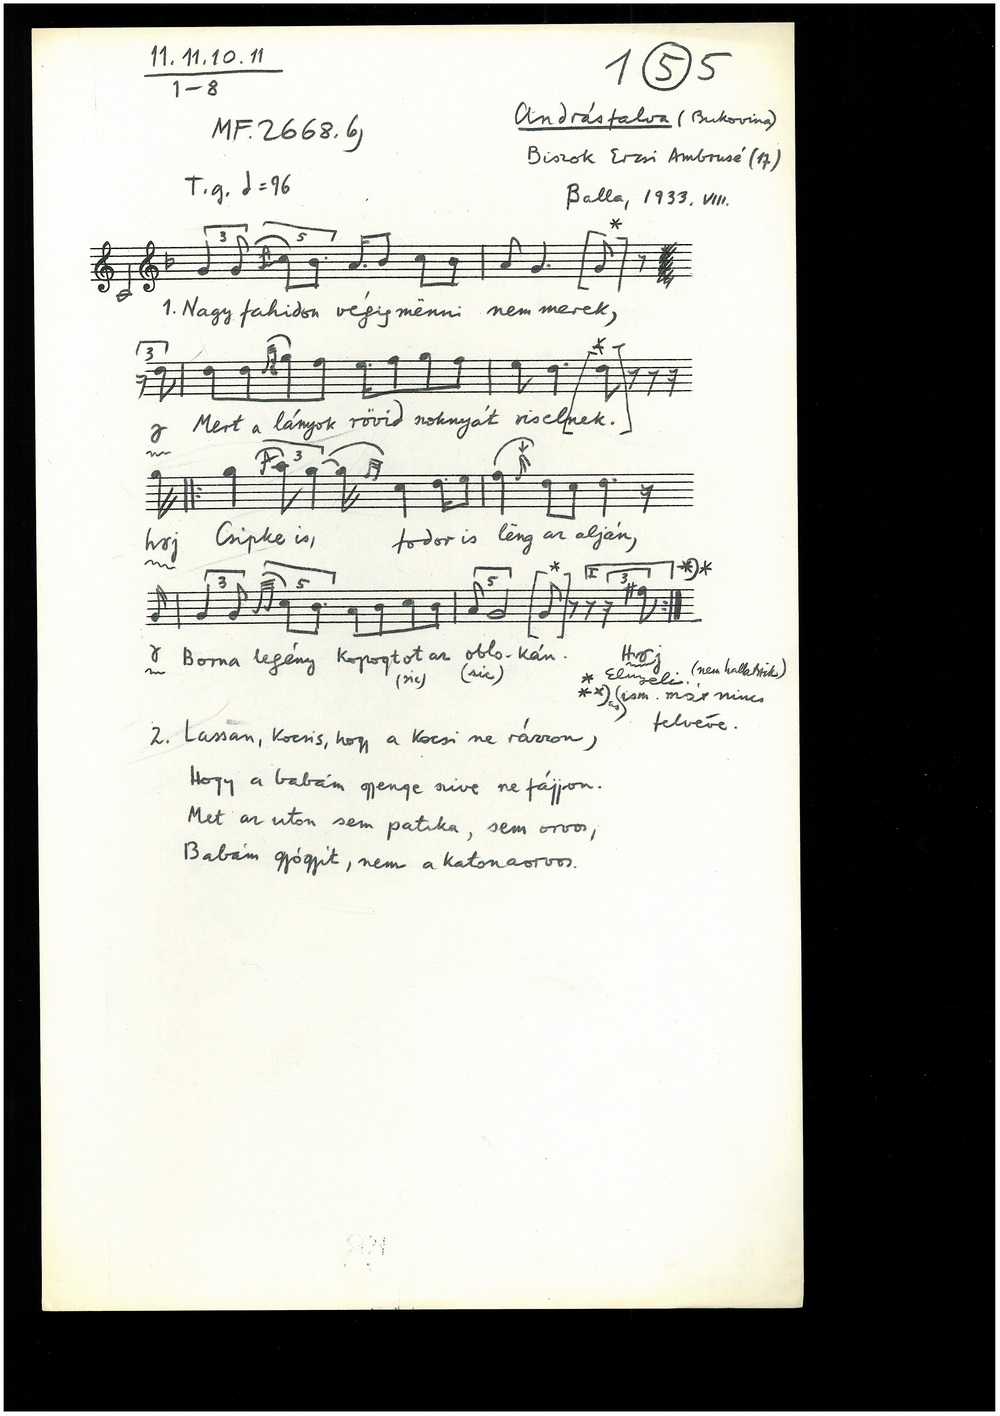 11. 11. 10. 11
1–8
1 5 5
MF. 2668. b)
Andrásfalva (Bukovina)
Biszok Erzsi Ambrusé (17)
T.g. ♩=96
Balla, 1933. VIII.
3 5 *
1. Nagy fahidon végigmënni nem merek,
3 *
Mert a lányok rövid szoknyát viselnek.
3
Csipke is, fodor is lëng az alján,
3 5 5 * I 3 *)*
Borna legény kopogtot az oblo-kán.
(sic) (sic)
* (nem hallatszik)
**) ism. már nincs
felvéve.
2. Lassan, kocsis, hogy a kocsi ne rázzon,
Hogy a babám gyenge szive ne fájjon.
Met az uton sem patika, sem orvos,
Babám gyógyit, nem a katonaorvos.